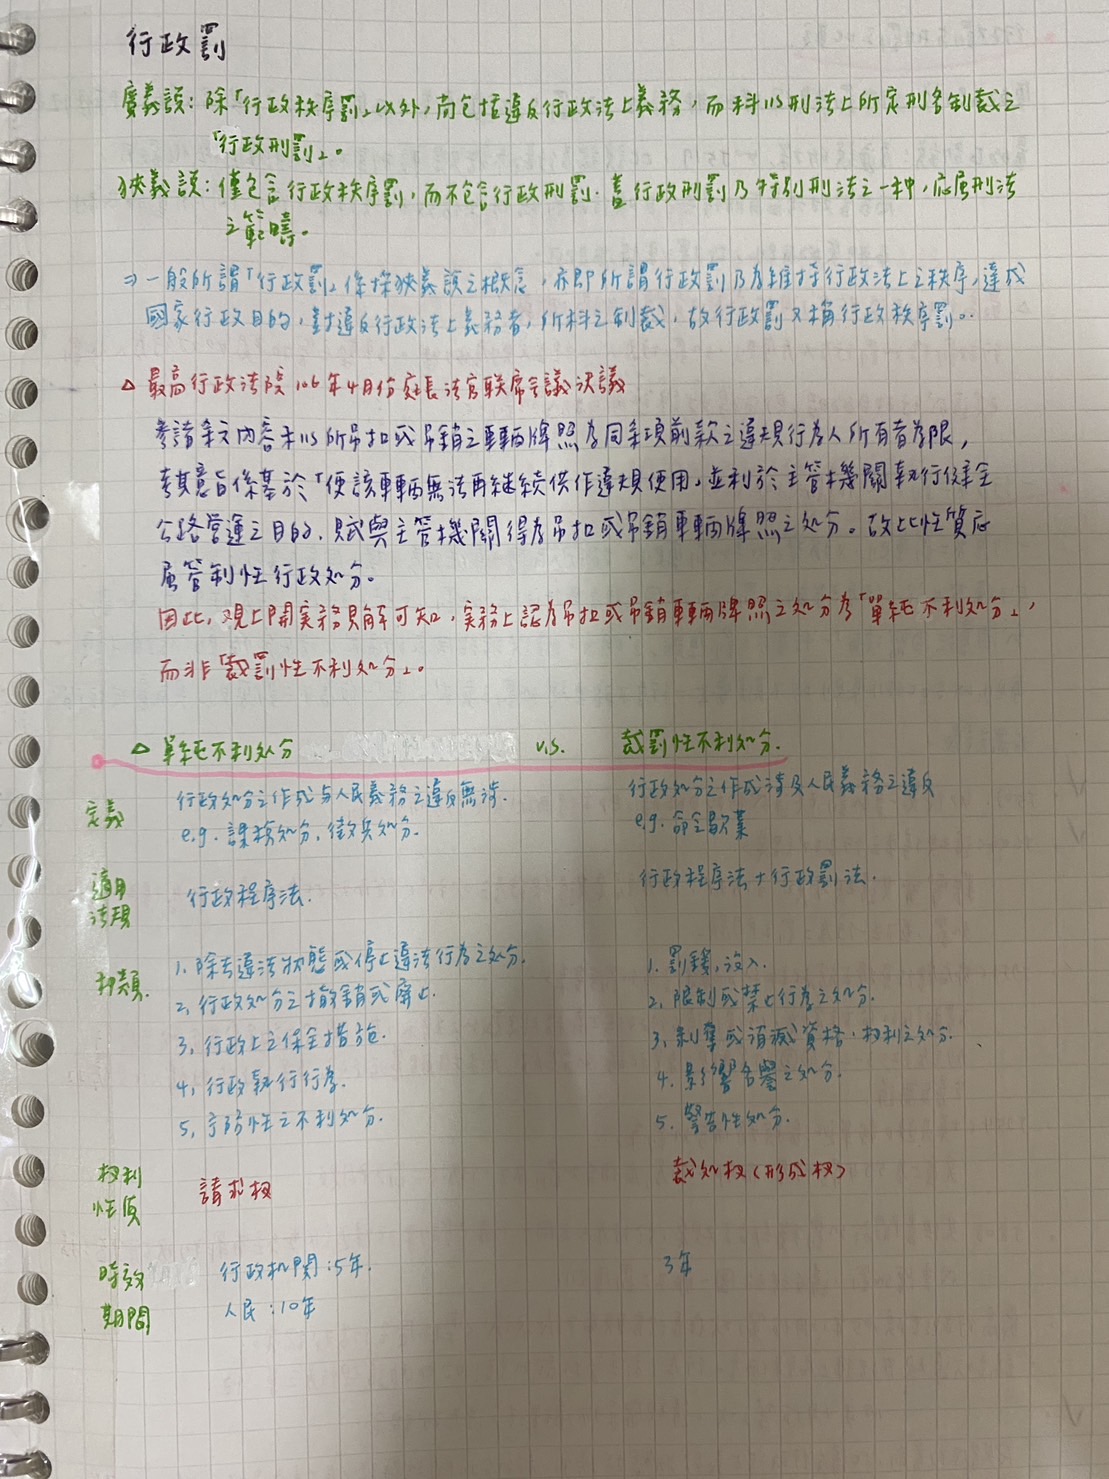 行政罰
廣義說：除「行政秩序罰」以外，尚包括違反行政法上義務，而科以刑法上所定刑名制裁之
「行政刑罰」。
狹義說：僅包含行政秩序罰，而不包含行政刑罰．蓋行政刑罰乃特別刑法之一種，應屬刑法
之範疇。
⇒一般所謂「行政罰」係採狹義說之概念，亦即所謂行政罰乃為維持行政法上之秩序，達成
國家行政目的，對違反行政法上義務者，所科之制裁，故行政罰又稱行政秩序罰。
△最高行政法院106年4月份庭長法官聯席會議決議
參諸條文內容未以所吊扣或吊銷之車輛牌照為同條項前款之違規行為人所有者為限，
其意旨係基於「使該車輛無法再繼續供作違規使用」並利於主管機關執行健全
公路營運之目的，賦與主管機關得為吊扣或吊銷車輛牌照之處分。故此性質应
屬管制性行政処分。
因此，觀上開實務見解可知，實務上認為吊扣或吊銷車輛牌照之処分為「單純不利処分」，
而非「裁罰性不利処分」。
△單純不利処分 v.s. 裁罰性不利処分．
定義 行政処分之作成与人民義務之違反無涉． 行政処分之作成涉及人民義務之違反
e.g. 課稅処分，徵兵処分． e.g. 命令歇業
適用
法規 行政程序法． 行政程序法＋行政罰法．
種類． 1. 除去違法狀態或停止違法行為之処分． 1. 罰鍰，沒入．
2. 行政処分之撤銷或廢止． 2. 限制或禁止行為之処分．
3. 行政上之保全措施． 3. 剝奪或消滅資格，权利之処分．
4. 行政執行行為． 4. 影響名譽之処分．
5. 予防性之不利処分． 5. 警告性処分．
权利
性質 請求权 裁処权（形成权）
時效
期間 行政机関：5年． 3年
人民：10年